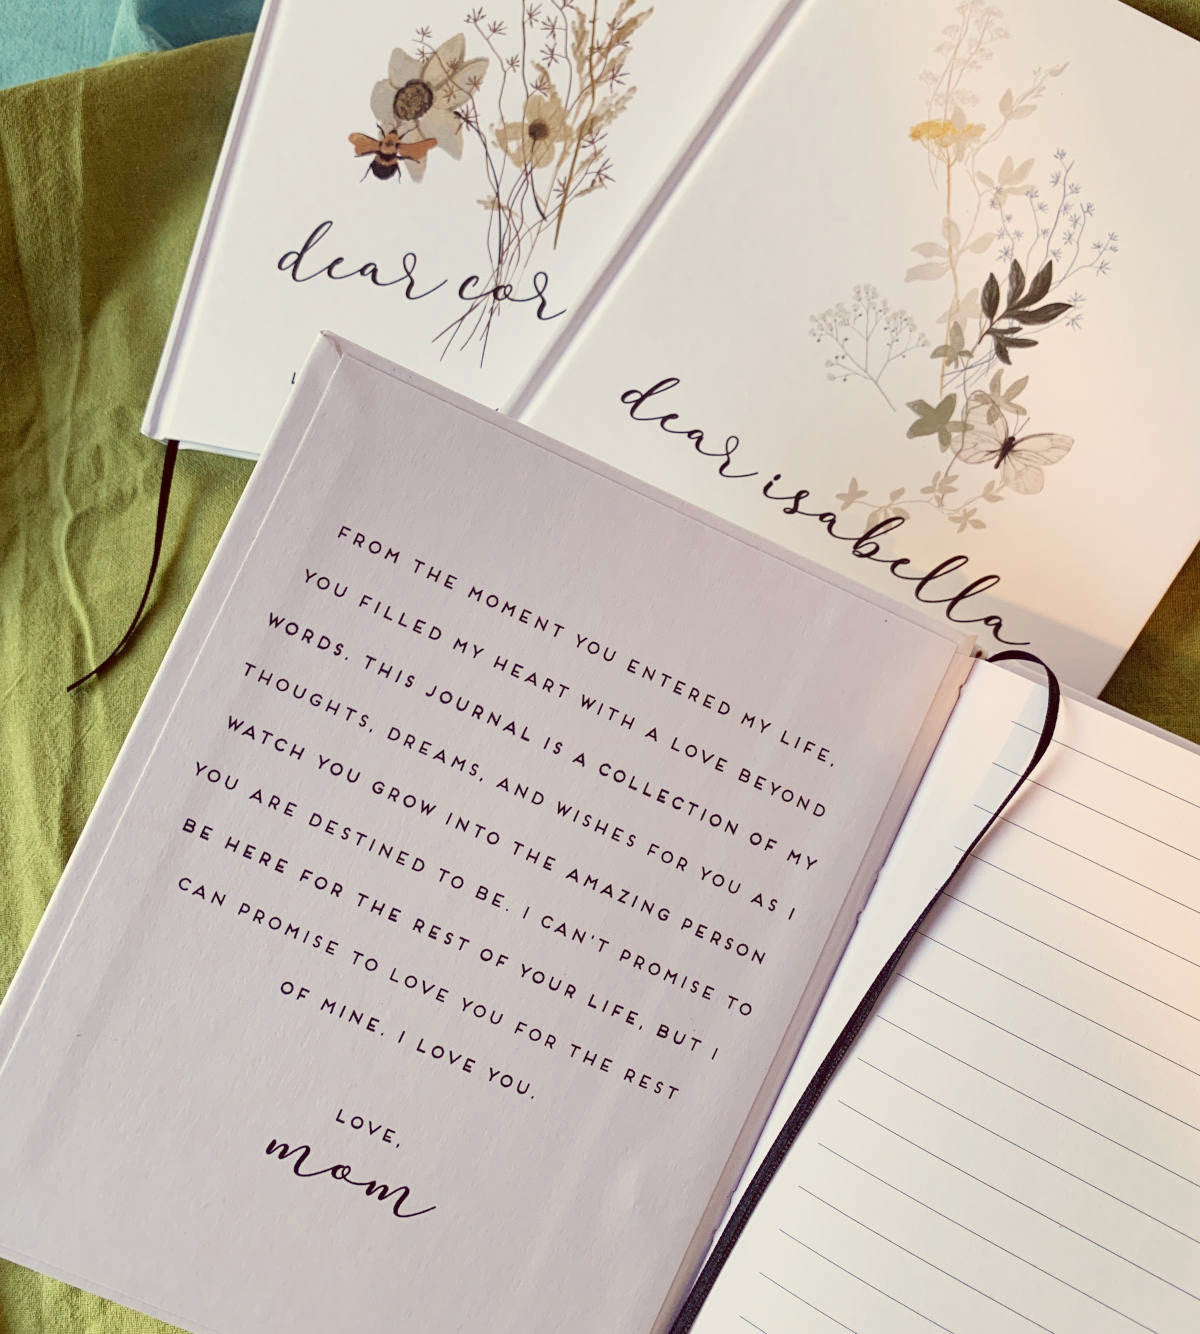 dear cor
dear isabella
FROM THE MOMENT YOU ENTERED MY LIFE,
YOU FILLED MY HEART WITH A LOVE BEYOND
WORDS. THIS JOURNAL IS A COLLECTION OF MY
THOUGHTS, DREAMS, AND WISHES FOR YOU AS I
WATCH YOU GROW INTO THE AMAZING PERSON
YOU ARE DESTINED TO BE. I CAN'T PROMISE TO
BE HERE FOR THE REST OF YOUR LIFE, BUT I
CAN PROMISE TO LOVE YOU FOR THE REST
OF MINE. I LOVE YOU.
LOVE,
mom